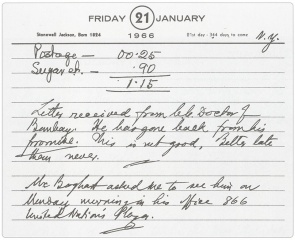 FRIDAY 21 JANUARY
Stonewall Jackson, Born 1824 1966 21st day - 344 days to come N.Y.
Postage — 00.25
Sugar ch. — .90
1.15
Letter received from Doctor of
Bombay. He has gone back from his
promise. This is not good. Better late
than never.
Mr. Boghat asked me to see him on
Monday morning in his office 866
United Nations Plaza.